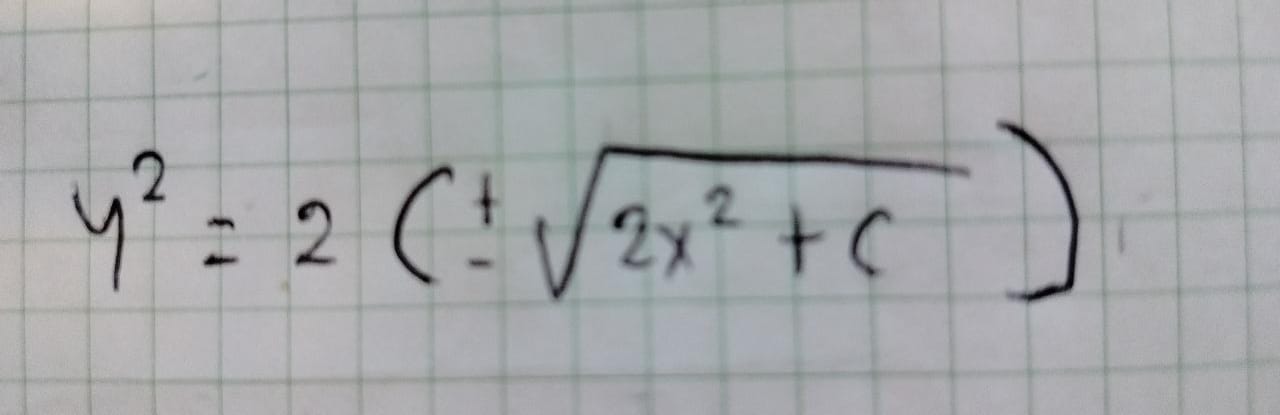 y² = 2 (± √(2x² + c))